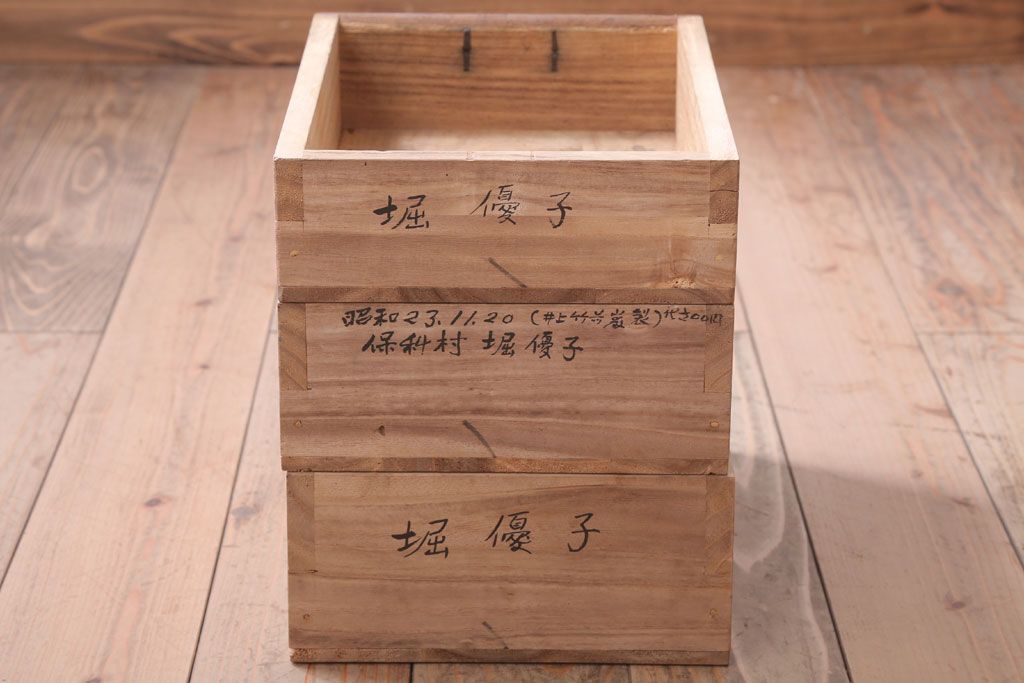 堀 優子
昭和23.11.20 (井上竹 製)代
保科村 堀 優子
堀 優子